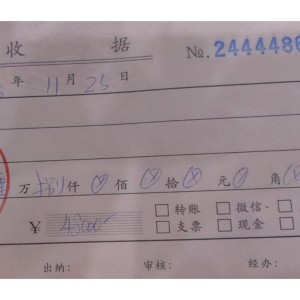 收 据 No. 2444486
年 11 月 25 日
万 捌 仟 佰 拾 元 角
¥ 48000 □ 转账 □ 微信
□ 支票 □ 现金
出纳： 审核： 经办：